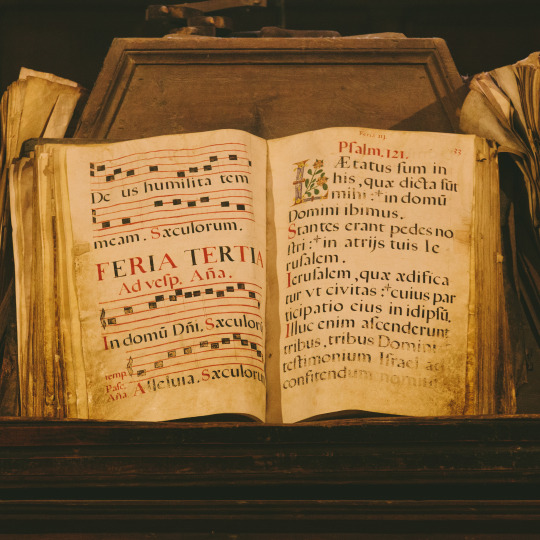 De us humilita tem
meam. Sæculorum.
FERIA TERTIA
Ad vesp. Aña.
In domū Dñi. Sæculor
temp.
Pasc.
Aña. Alleluia. Sæculorum
Feria iij.
Psalm. 121.
LÆtatus sum in
his, quæ dicta sūt
mihi :+ in domū
Domini ibimus.
Stantes erant pedes no
stri :+ in atrijs tuis Ie
rusalem.
Ierusalem, quæ ædifica
tur vt civitas :+ cuius par
ticipatio eius in idipsū.
Illuc enim ascenderunt
tribus, tribus Domini
testimonium Israel ad
confitendum nomini